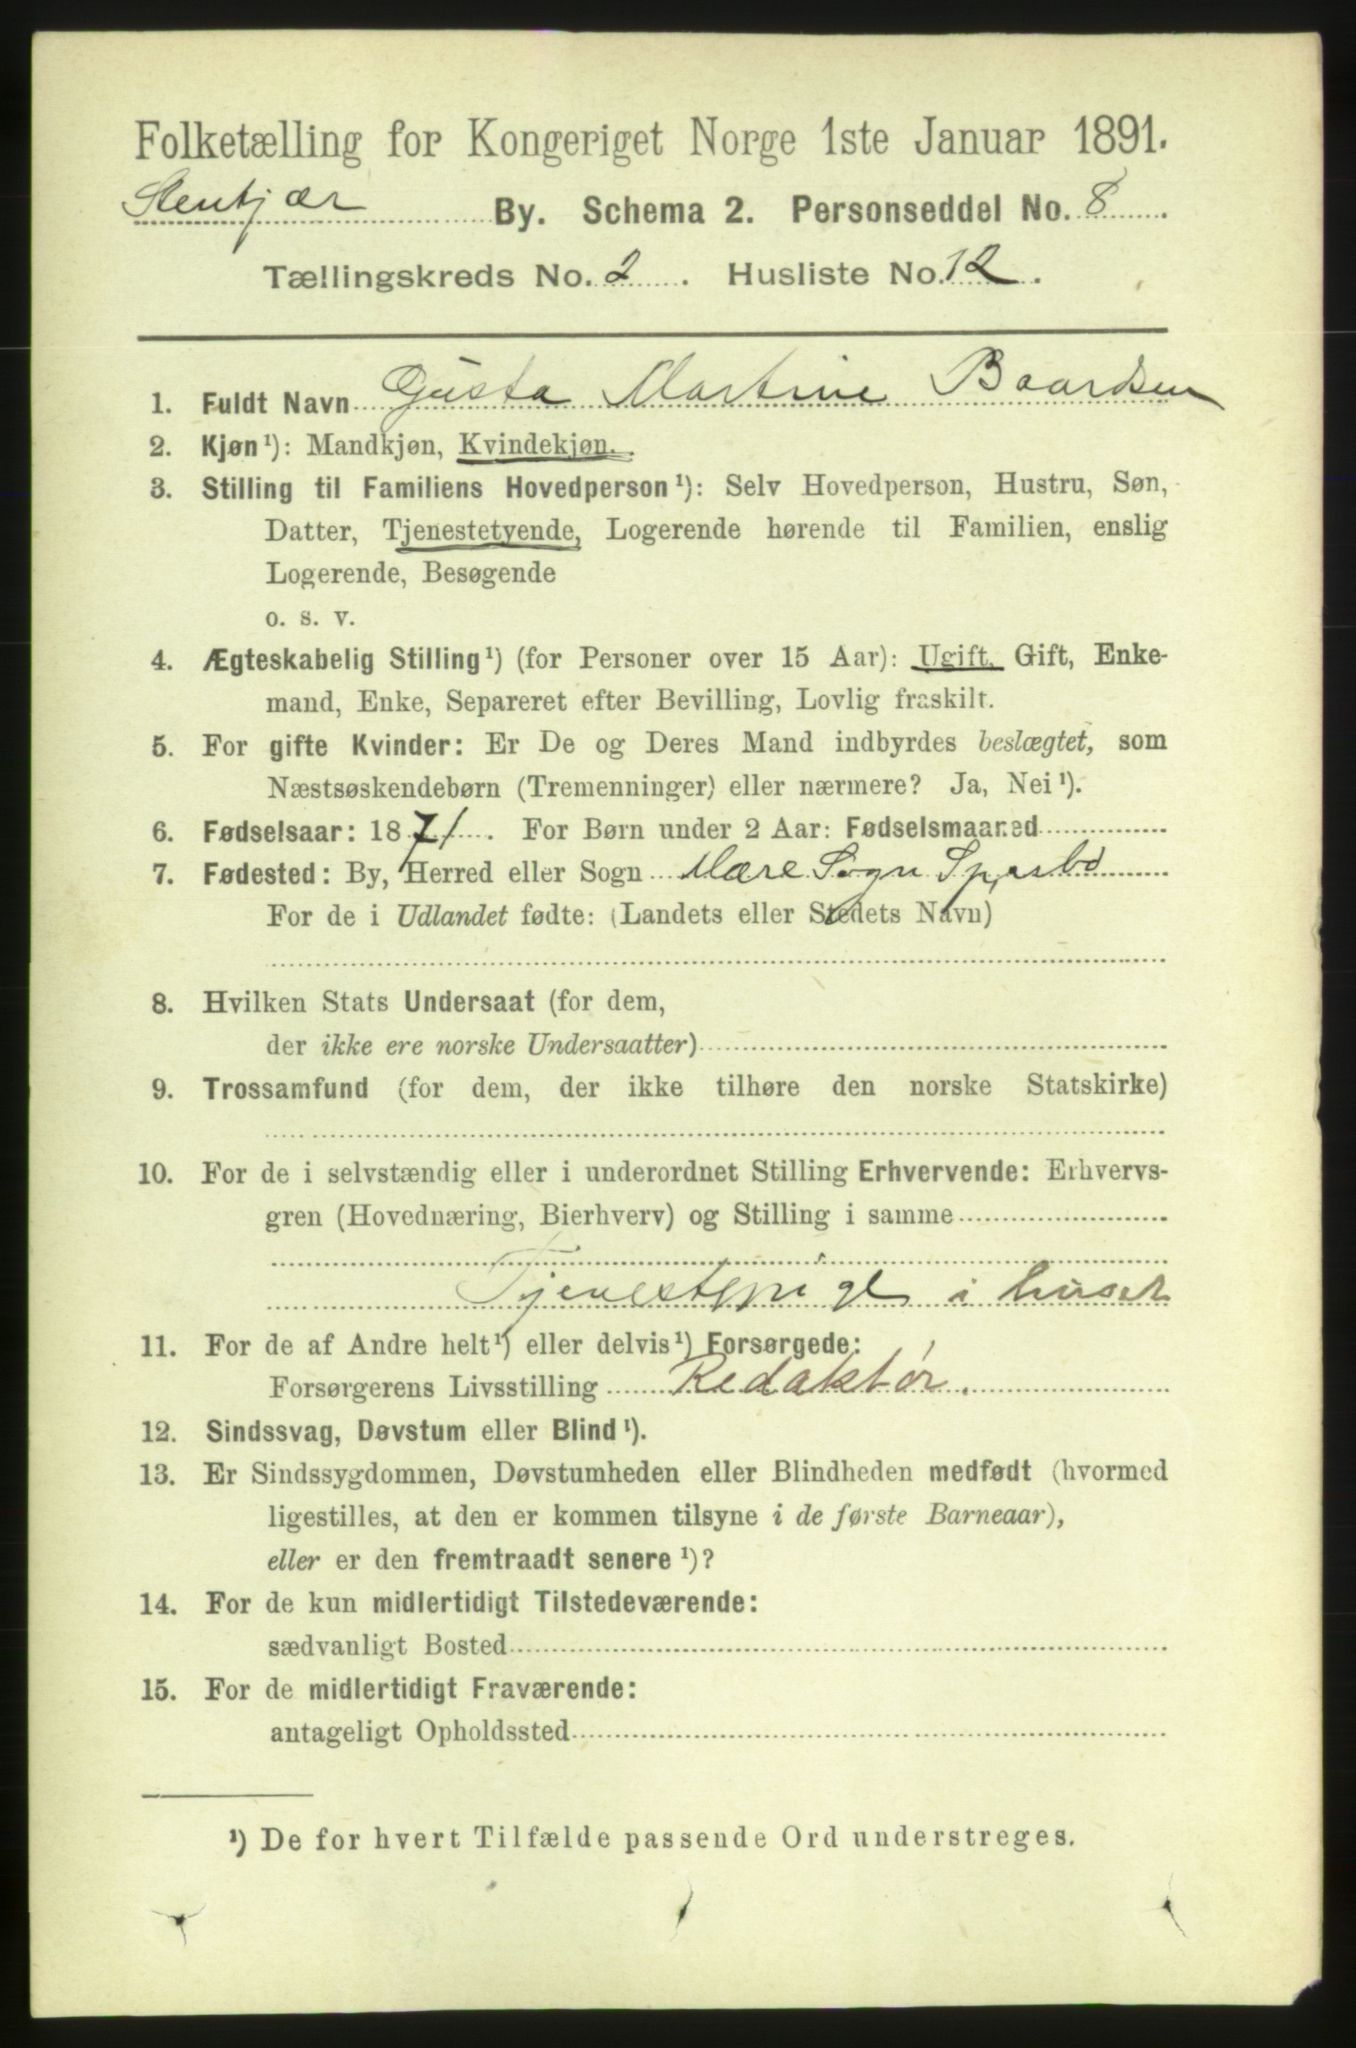 Folketælling for Kongeriget Norge 1ste Januar 1891.
Stenkjær By. Schema 2. Personseddel No. 8.
Tællingskreds No. 2. Husliste No. 12.
1. Fuldt Navn Gusta Martine Baardsen
2. Kjøn¹): Mandkjøn, Kvindekjøn.
3. Stilling til Familiens Hovedperson¹): Selv Hovedperson, Hustru, Søn,
Datter, Tjenestetyende, Logerende hørende til Familien, enslig
Logerende, Besøgende
o. s. v.
4. Ægteskabelig Stilling¹) (for Personer over 15 Aar): Ugift, Gift, Enke-
mand, Enke, Separeret efter Bevilling, Lovlig fraskilt.
5. For gifte Kvinder: Er De og Deres Mand indbyrdes beslægtet, som
Næstsøskendebørn (Tremenninger) eller nærmere? Ja, Nei¹).
6. Fødselsaar: 1871. For Børn under 2 Aar: Fødselsmaaned
7. Fødested: By, Herred eller Sogn Mære Sogn Sparbo
For de i Udlandet fødte: (Landets eller Stedets Navn)
8. Hvilken Stats Undersaat (for dem,
der ikke ere norske Undersaatter)
9. Trossamfund (for dem, der ikke tilhøre den norske Statskirke)
10. For de i selvstændig eller i underordnet Stilling Erhvervende: Erhvervs-
gren (Hovednæring, Bierhverv) og Stilling i samme
Tjenestepige i huset
11. For de af Andre helt¹) eller delvis¹) Forsørgede:
Forsørgerens Livsstilling Redaktør.
12. Sindssvag, Døvstum eller Blind¹).
13. Er Sindssygdommen, Døvstumheden eller Blindheden medfødt (hvormed
ligestilles, at den er kommen tilsyne i de første Barneaar),
eller er den fremtraadt senere¹)?
14. For de kun midlertidigt Tilstedeværende:
sædvanligt Bosted
15. For de midlertidigt Fraværende:
antageligt Opholdssted
¹) De for hvert Tilfælde passende Ord understreges.